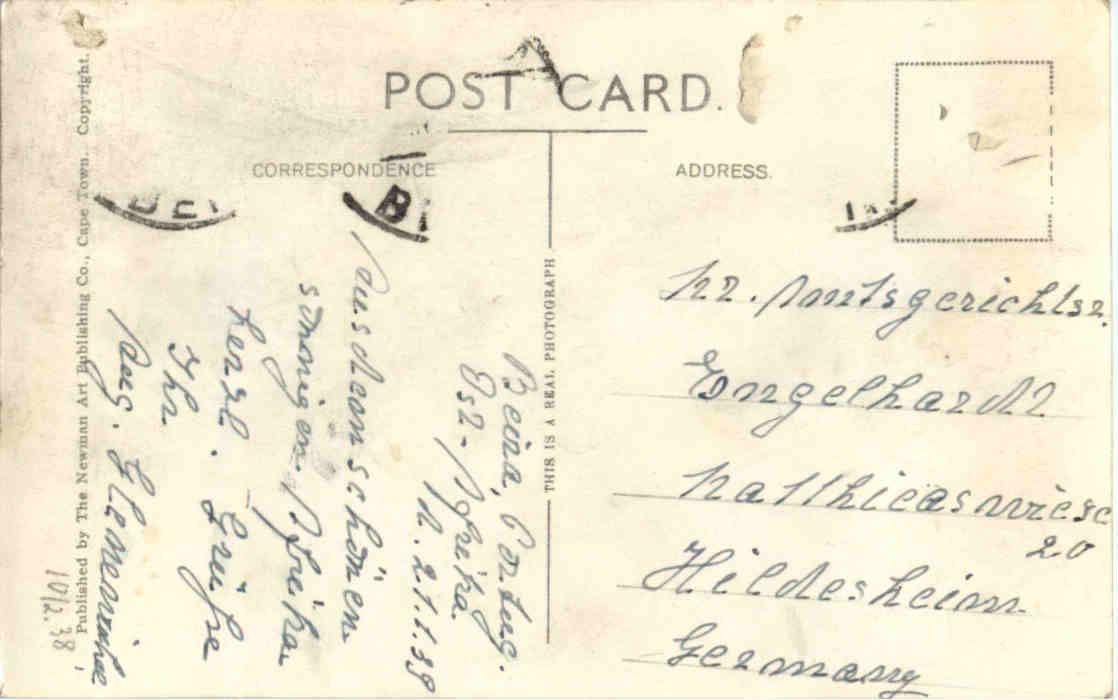 POST CARD.
CORRESPONDENCE
ADDRESS.
Published by The Newman Art Publishing Co., Cape Town. Copyright.
THIS IS A REAL PHOTOGRAPH
BEI
Beira, Portug.
Ost-Afrika.
21.1.39
Aus dem schönen
sonnigen Afrika
herzl. Grüße
Ihr
Aug.
Engelhardt
Matthiaswiese
20
Hildesheim
Germany